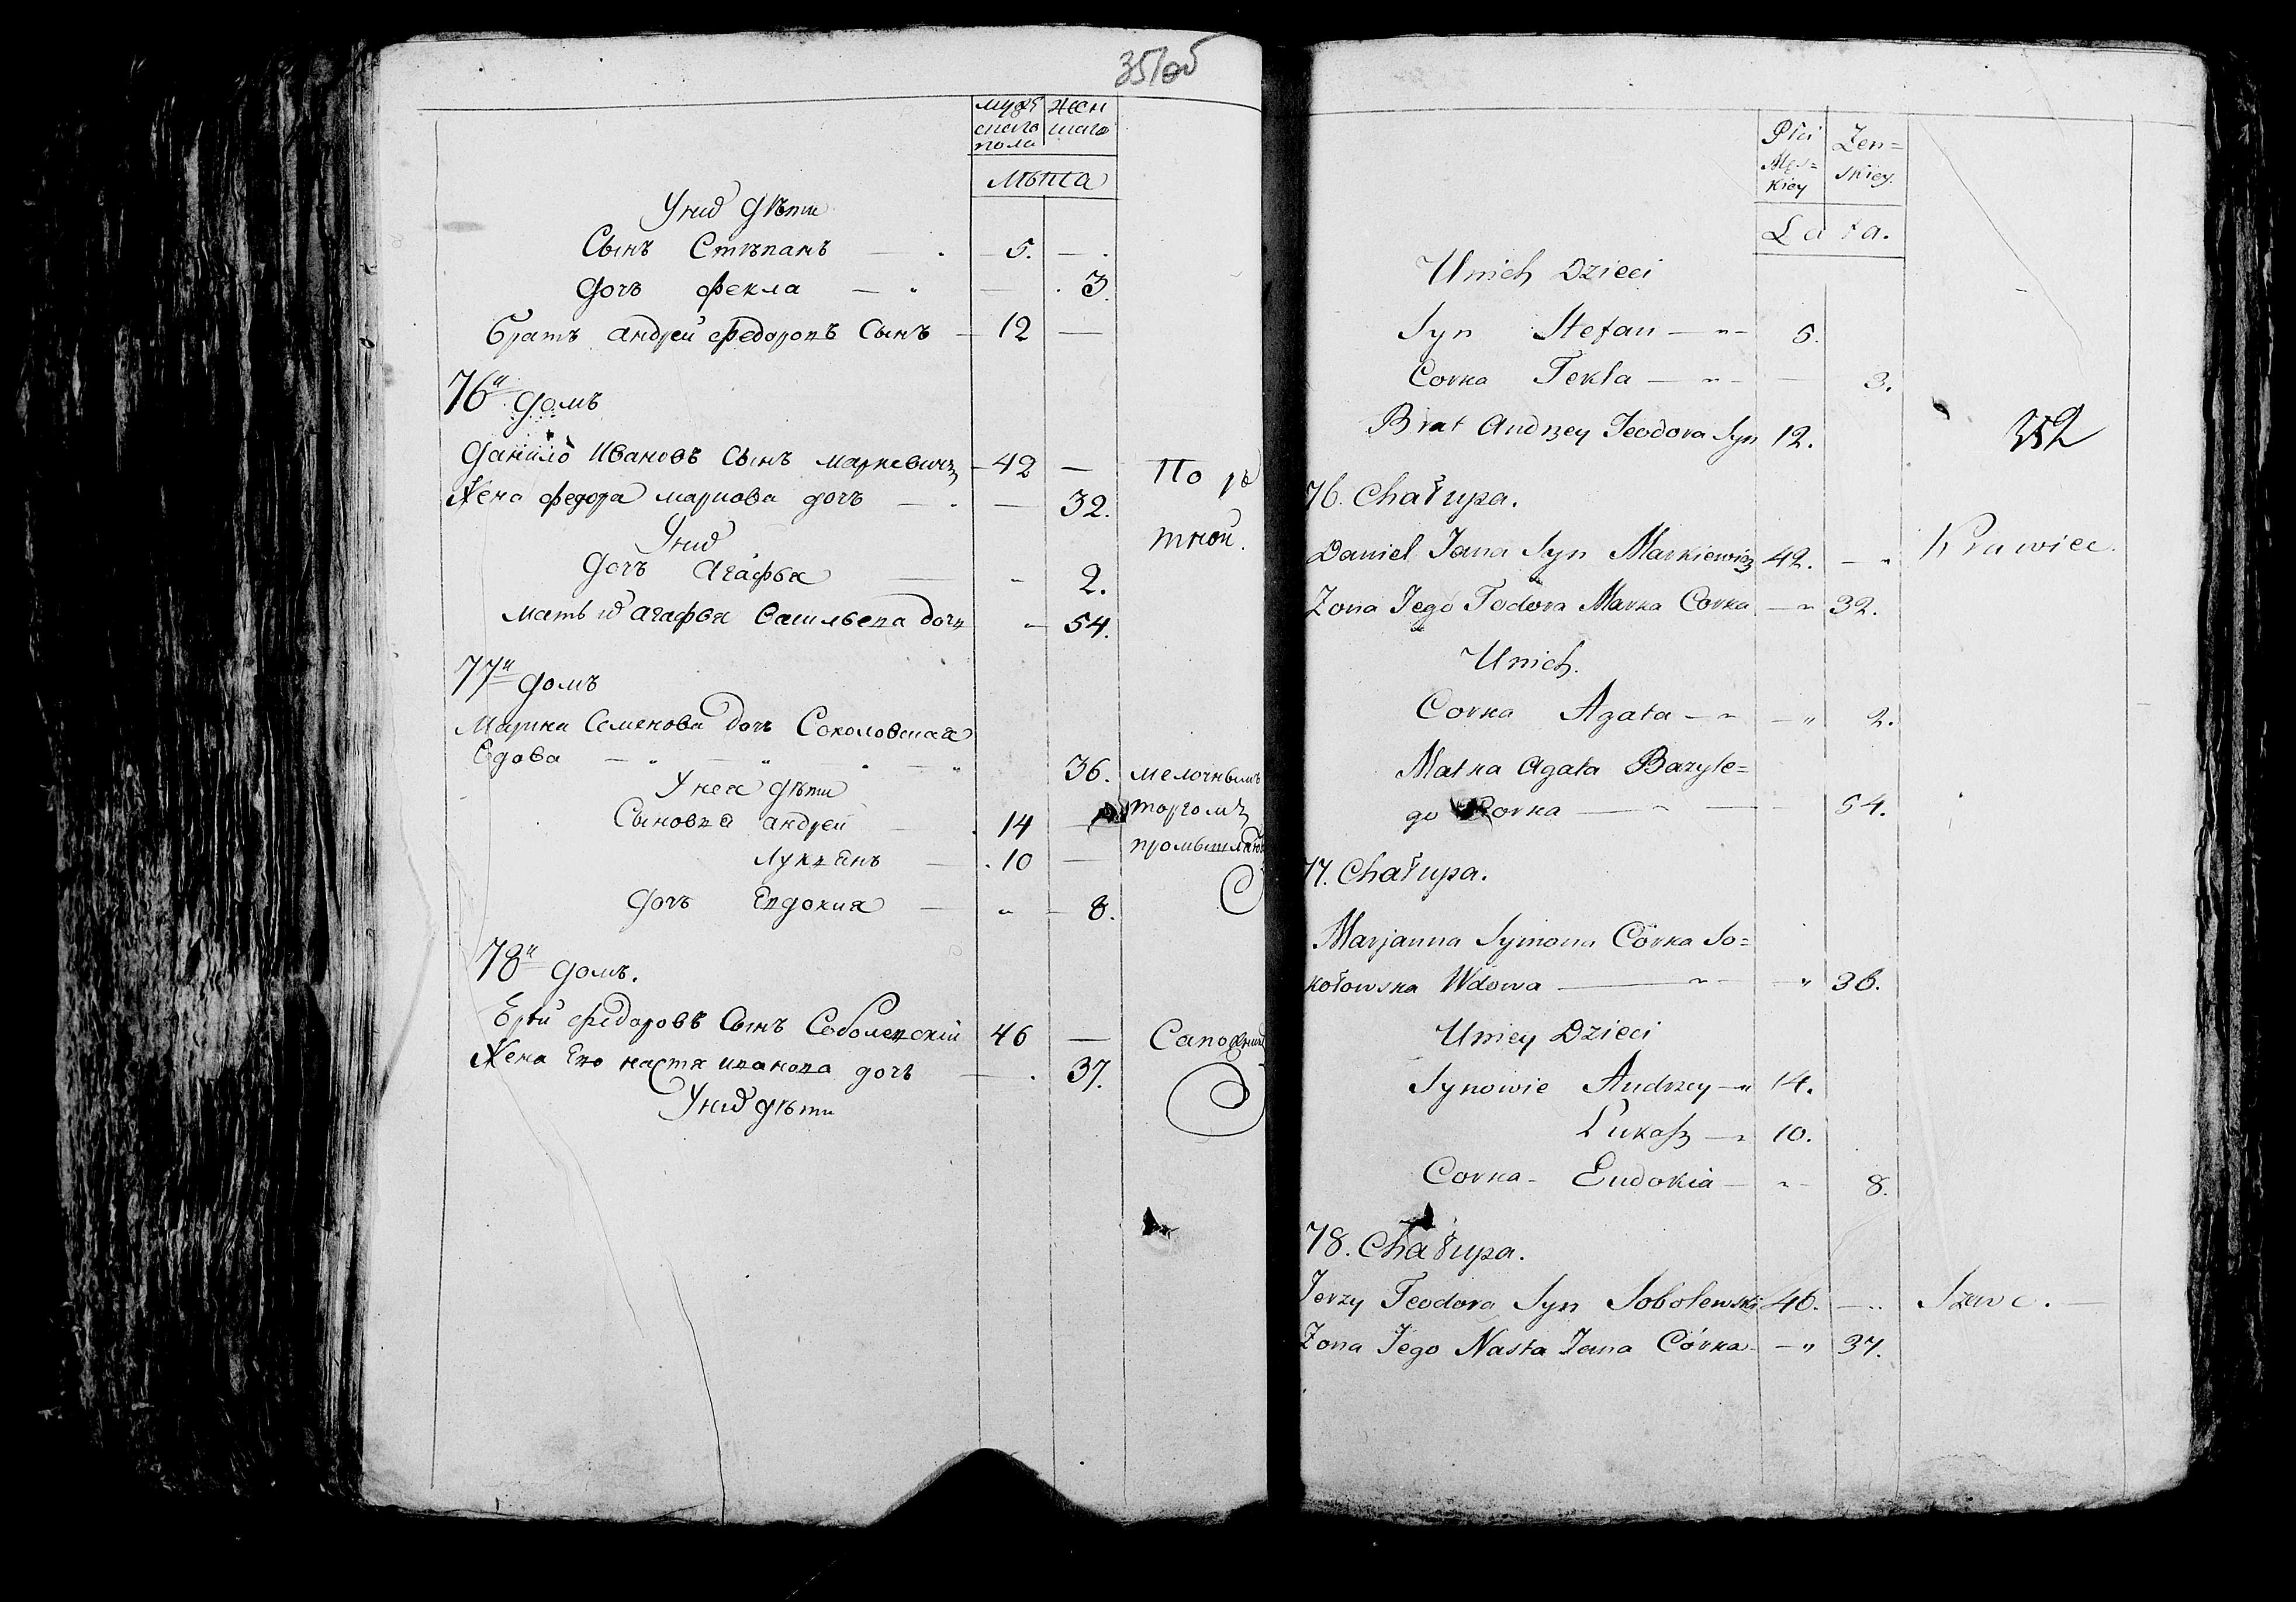 351об
мужскаго пола
женскаго
Лѣта
У них дѣти
Сынъ Стѣпанъ — 5. —
Дочъ Фекла — — 3.
братъ андрей Федоровъ Сынъ — 12 —
76й Домъ
Данило Ивановъ Сынъ маркевичъ — 42 —
Жена Федора маркова дочъ — — 32.
У них
Дочъ Агафья — " 2.
Мать их агафья Васильева дочъ " 54.
По рт
тной.
77й Домъ
Марина Семенова дочъ Соколовская
Вдова — " — " — " 36.
У нея дѣти
Сыновья андрей — 14 —
Лукьянъ — 10 —
Дочъ Евдокия — " — 8.
мелочнымъ
торгомъ
78й Домъ.
Ерый Федоровъ Сынъ Соболевскій 46 —
Жена Его настя иванова дочъ — 37.
У них дѣти
Płci Męs=kiey
Zen=skiey.
Lata.
Unich Dzieci
Syn Stefan — " — 5.
Corka Tekla — " — — 3.
Brat Andrzey Teodora Syn 12.
352
76. Chałupa.
Daniel Jana Syn Markiewicz 42. — " Krawiec.
Zona Jego Todora Marka Corka — " 32.
Unich.
Corka Agata — " — " 2.
Matka Agata Bazyle=
go Corka — " — 54.
77. Chałupa.
Marjanna Symona Córka So=
kołowska Wdowa — " — " 36.
Uniey Dzieci
Synowie Andrzey — " 14.
Łukasz — " 10.
Corka — Eudokia — " — 8.
78. Chałupa.
Jerzy Teodora Syn Sobolewski 46. — " Szewc. —
Zona Jego Nasta Jana Córka — " 37.